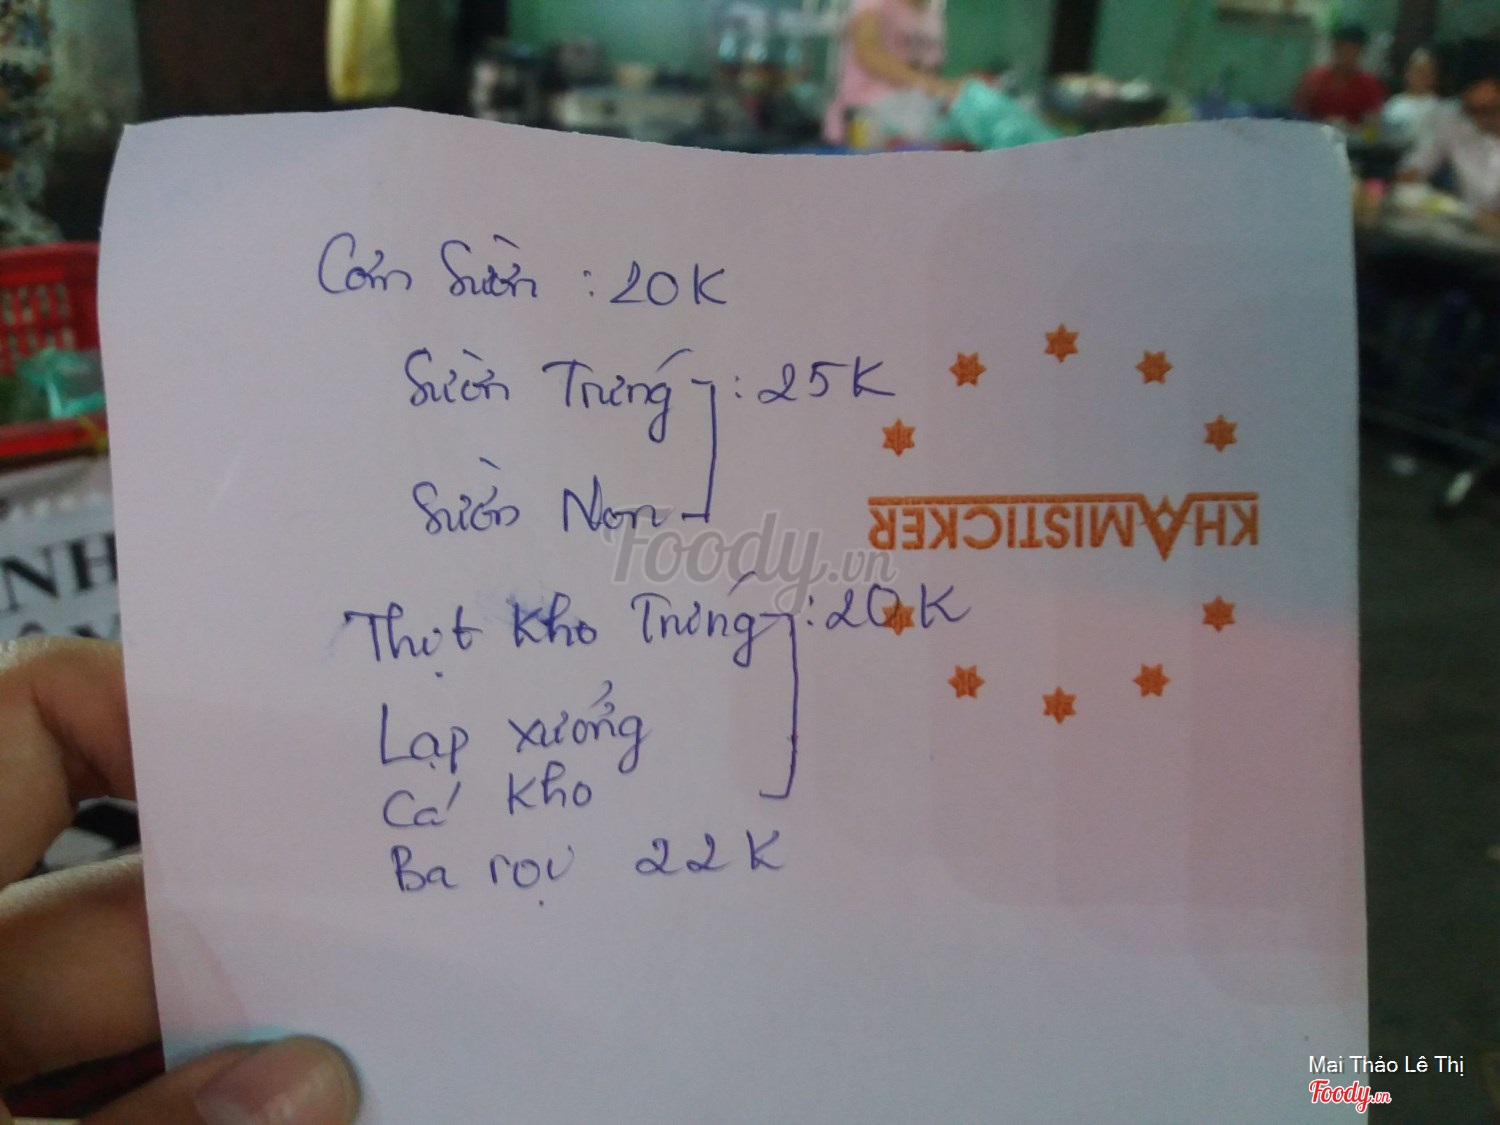 Cơm Sườn : 20K
Sườn Trứng : 25K
Sườn Non
Thịt Kho Trứng : 20K
Lạp xưởng
Cá Kho
Ba rọi 22K
KHAMISTICKER
Foody.vn
NH
Mai Thảo Lê Thị
Foody.vn